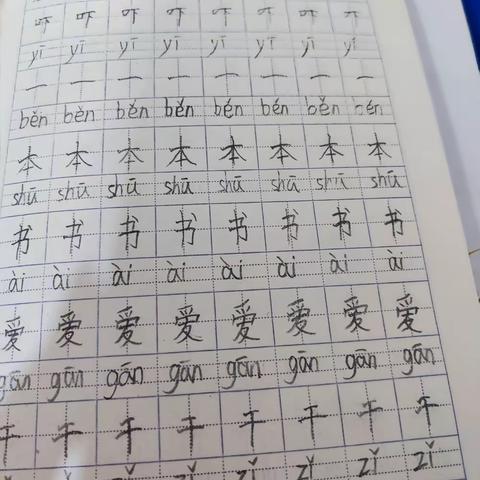 yī yī yī yī yī yī yī
一 一 一 一 一 一 一
běn bèn běn běn bén bén běn bén
本 本 本 本 本 本 本 本
shū shū shū shū shū shū shū shū
书 书 书 书 书 书 书 书
ài ài ài ài ài ài ài ài
爱 爱 爱 爱 爱 爱 爱 爱
gān gān gān gān gān gān gān gān
干 干 干 干 干 干 干 干
zǐ zǐ zǐ